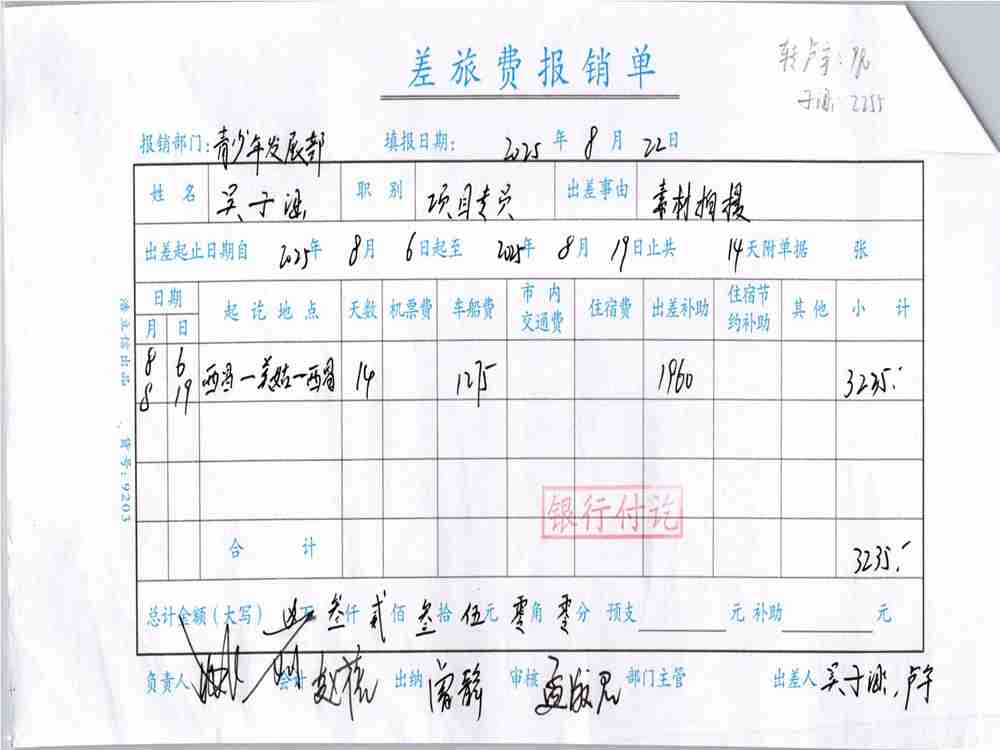 差旅费报销单
转卢宇:
子涵: 2255
报销部门: 青少年发展部 填报日期: 2025 年 8 月 22 日
姓名 吴子涵 职别 项目专员 出差事由 素材拍摄
出差起止日期自 2025 年 8 月 6 日起至 2025 年 8 月 19 日止共 14 天附单据 张
日期 起讫地点 天数 机票费 车船费 市内交通费 住宿费 出差补助 住宿节约补助 其他 小计
月 日
8 6 西昌一美姑一西昌 14 1275 1960 3235.
8 19
银行付讫
合计 3235.
总计金额(大写) 万 叁仟 贰佰 叁拾 伍元 零角 零分 预支 元 补助 元
负责人 会计 出纳 曾静 审核 部门主管 出差人 吴子涵, 卢宇
货号: 9203